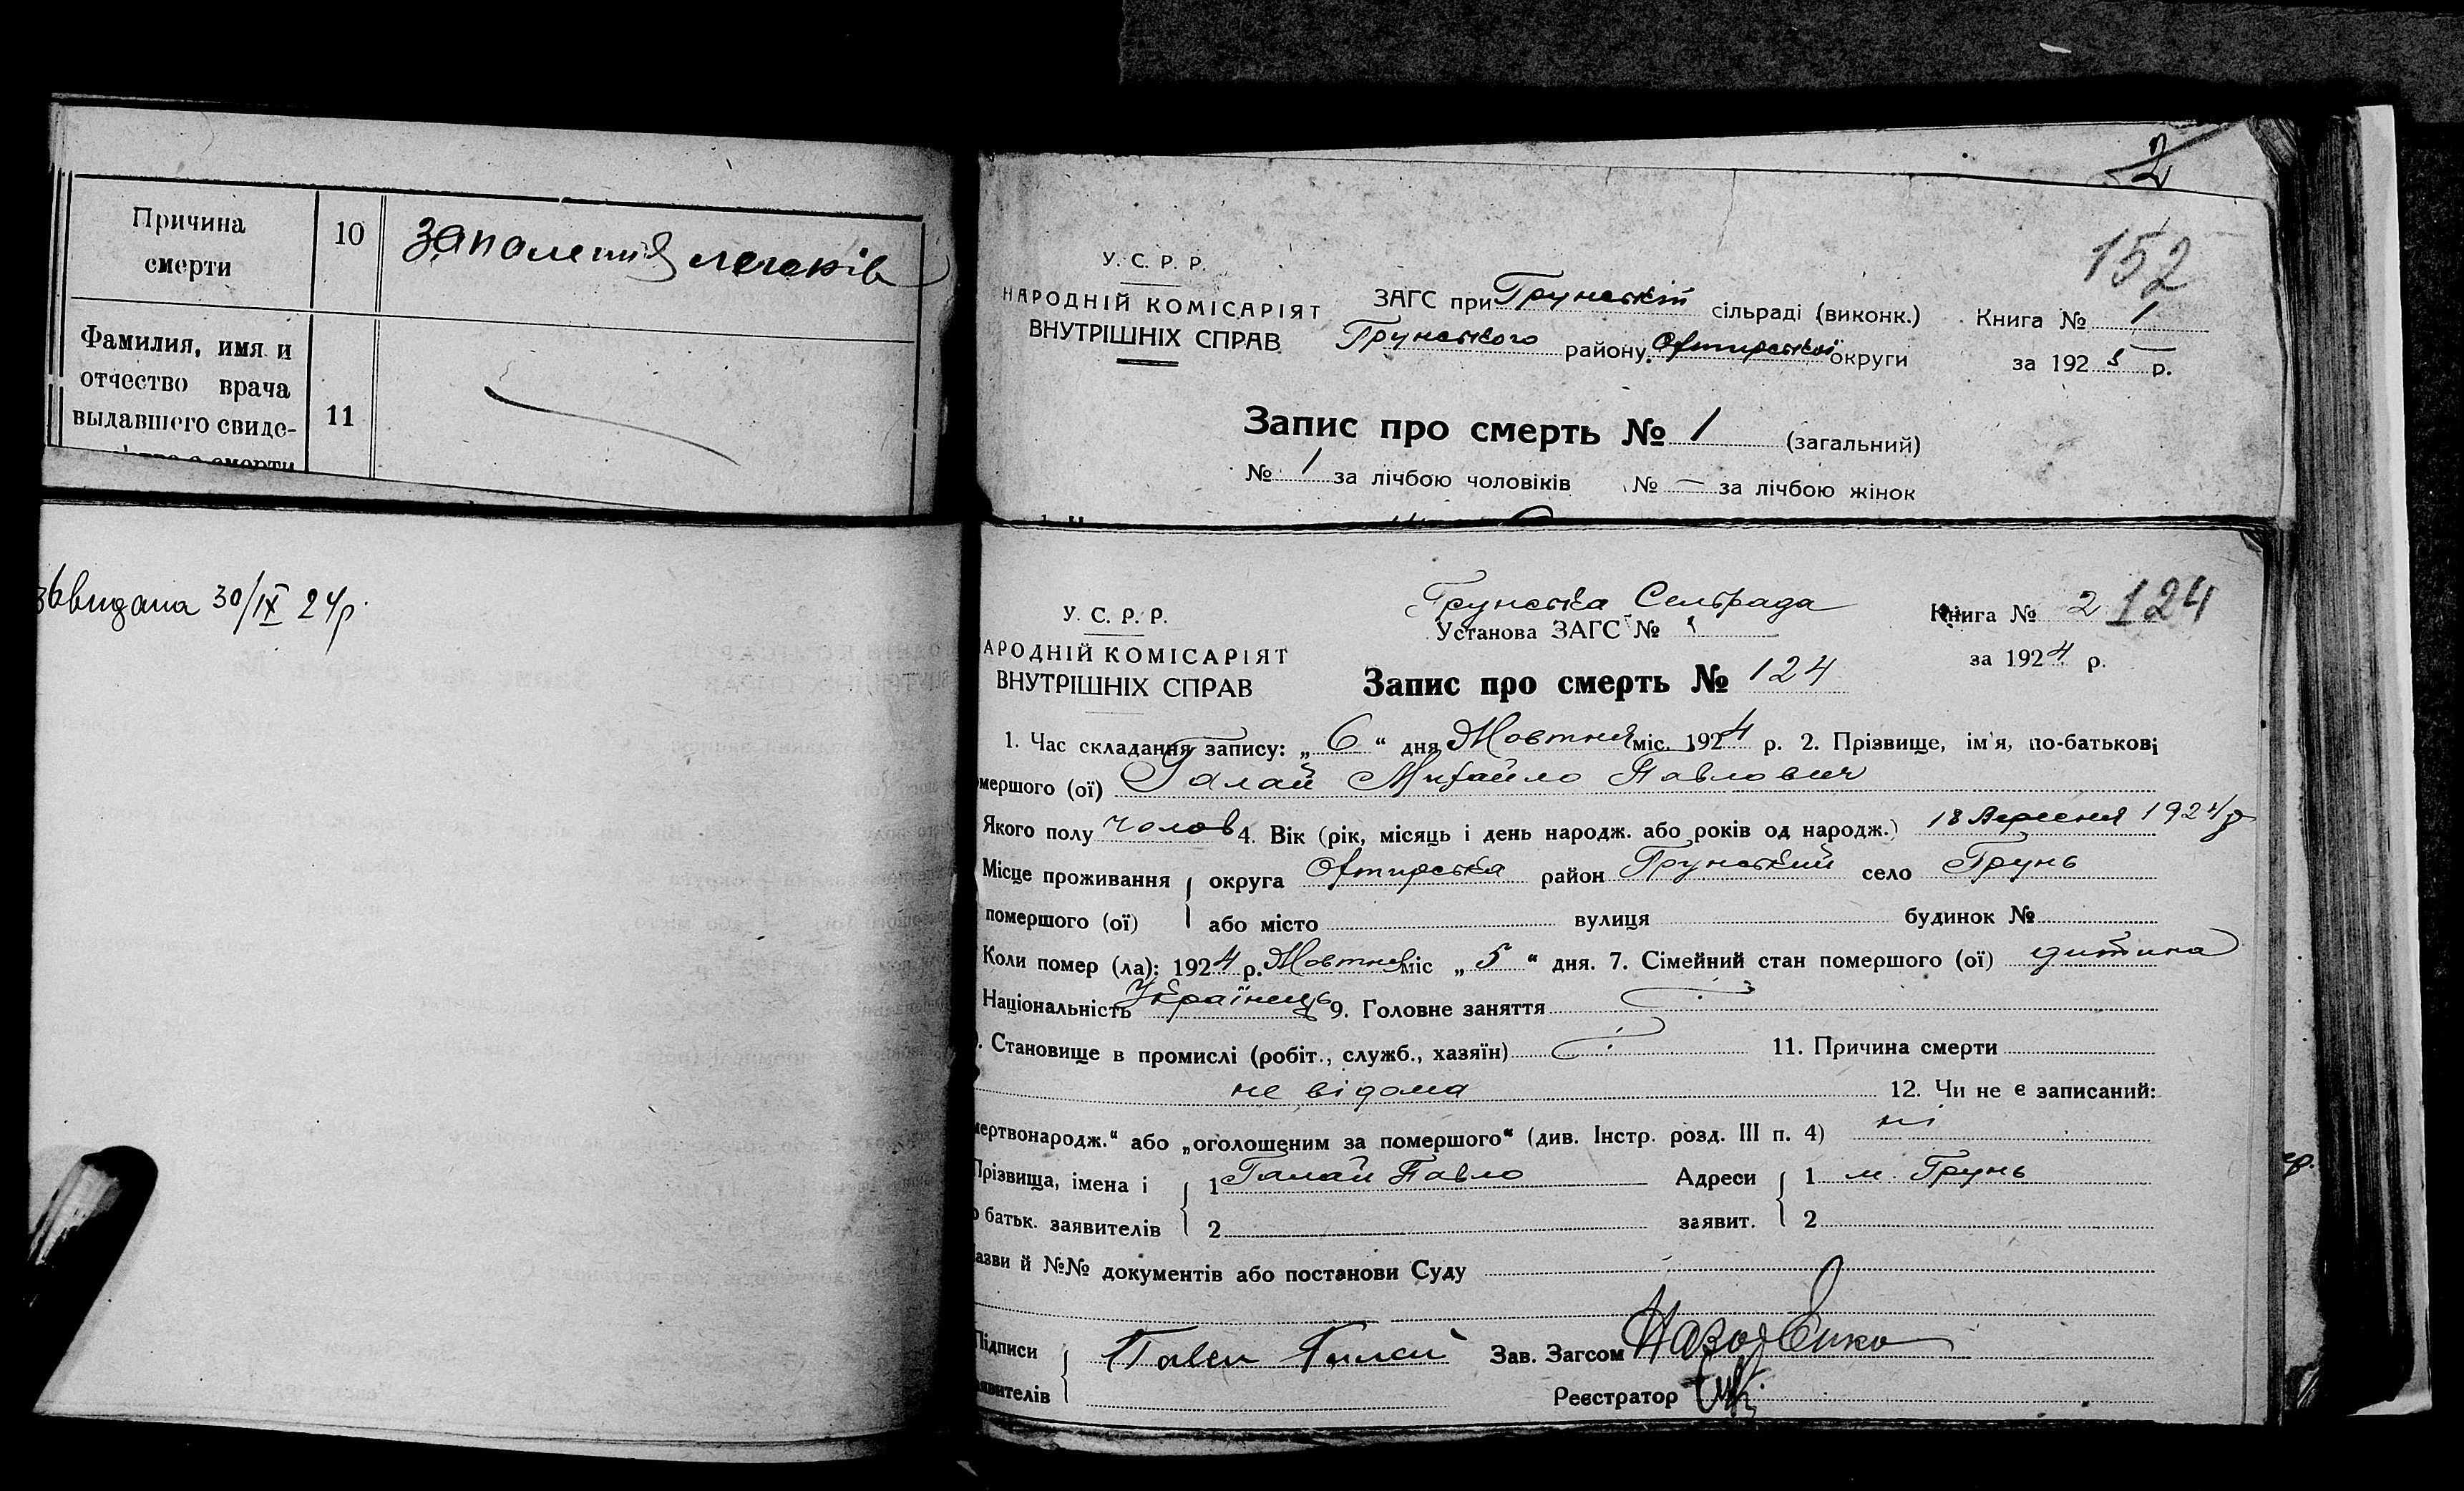 Причина
смерти
10
запаления легеків
Фамилия, имя и
отчество врача
выдавшего свиде-
11
видана 30/IX 24р.
2
152
У. С. Р. Р.
НАРОДНІЙ КОМІСАРІЯТ
ВНУТРІШНІХ СПРАВ
ЗАГС при Грунській сільраді (виконк.)
Грунського району Охтирської округи
Книга № 1
за 1925 р.
Запис про смерть № 1 (загальний)
№ 1 за лічбою чоловіків № — за лічбою жінок
У. С. Р. Р.
АРОДНІЙ КОМІСАРІЯТ
ВНУТРІШНІХ СПРАВ
Грунська Сельрада
Установа ЗАГС №
Книга № 2 124
за 1924 р.
Запис про смерть № 124
1. Час складання запису: „ 6 “ дня Жовтня міс. 1924 р. 2. Прізвище, ім'я, по-батькові
мершого (ої) Галай Михайло Павлович
Якого полу чолов 4. Вік (рік, місяць і день народж. або років од народж.) 18 Вересня 1924 р
Місце проживання округа Охтирська район Грунський село Грунь
помершого (ої) або місто вулиця будинок №
Коли помер (ла): 1924 р. Жовтня міс „ 5 “ дня. 7. Сімейний стан помершого (ої) дитина
Національність Українець 9. Головне заняття
. Становище в промислі (робіт., служб., хазяїн) 11. Причина смерти
не відома 12. Чи не є записаний:
мертвонародж.“ або „оголошеним за помершого“ (див. Інстр. розд. III п. 4) ні
Прізвища, імена і 1 Галай Павло Адреси 1 м. Грунь
о батьк. заявителів 2 заявит. 2
азви й №№ документів або постанови Суду
Підписи Павел Галай Зав. Загсом
явителів Реєстратор